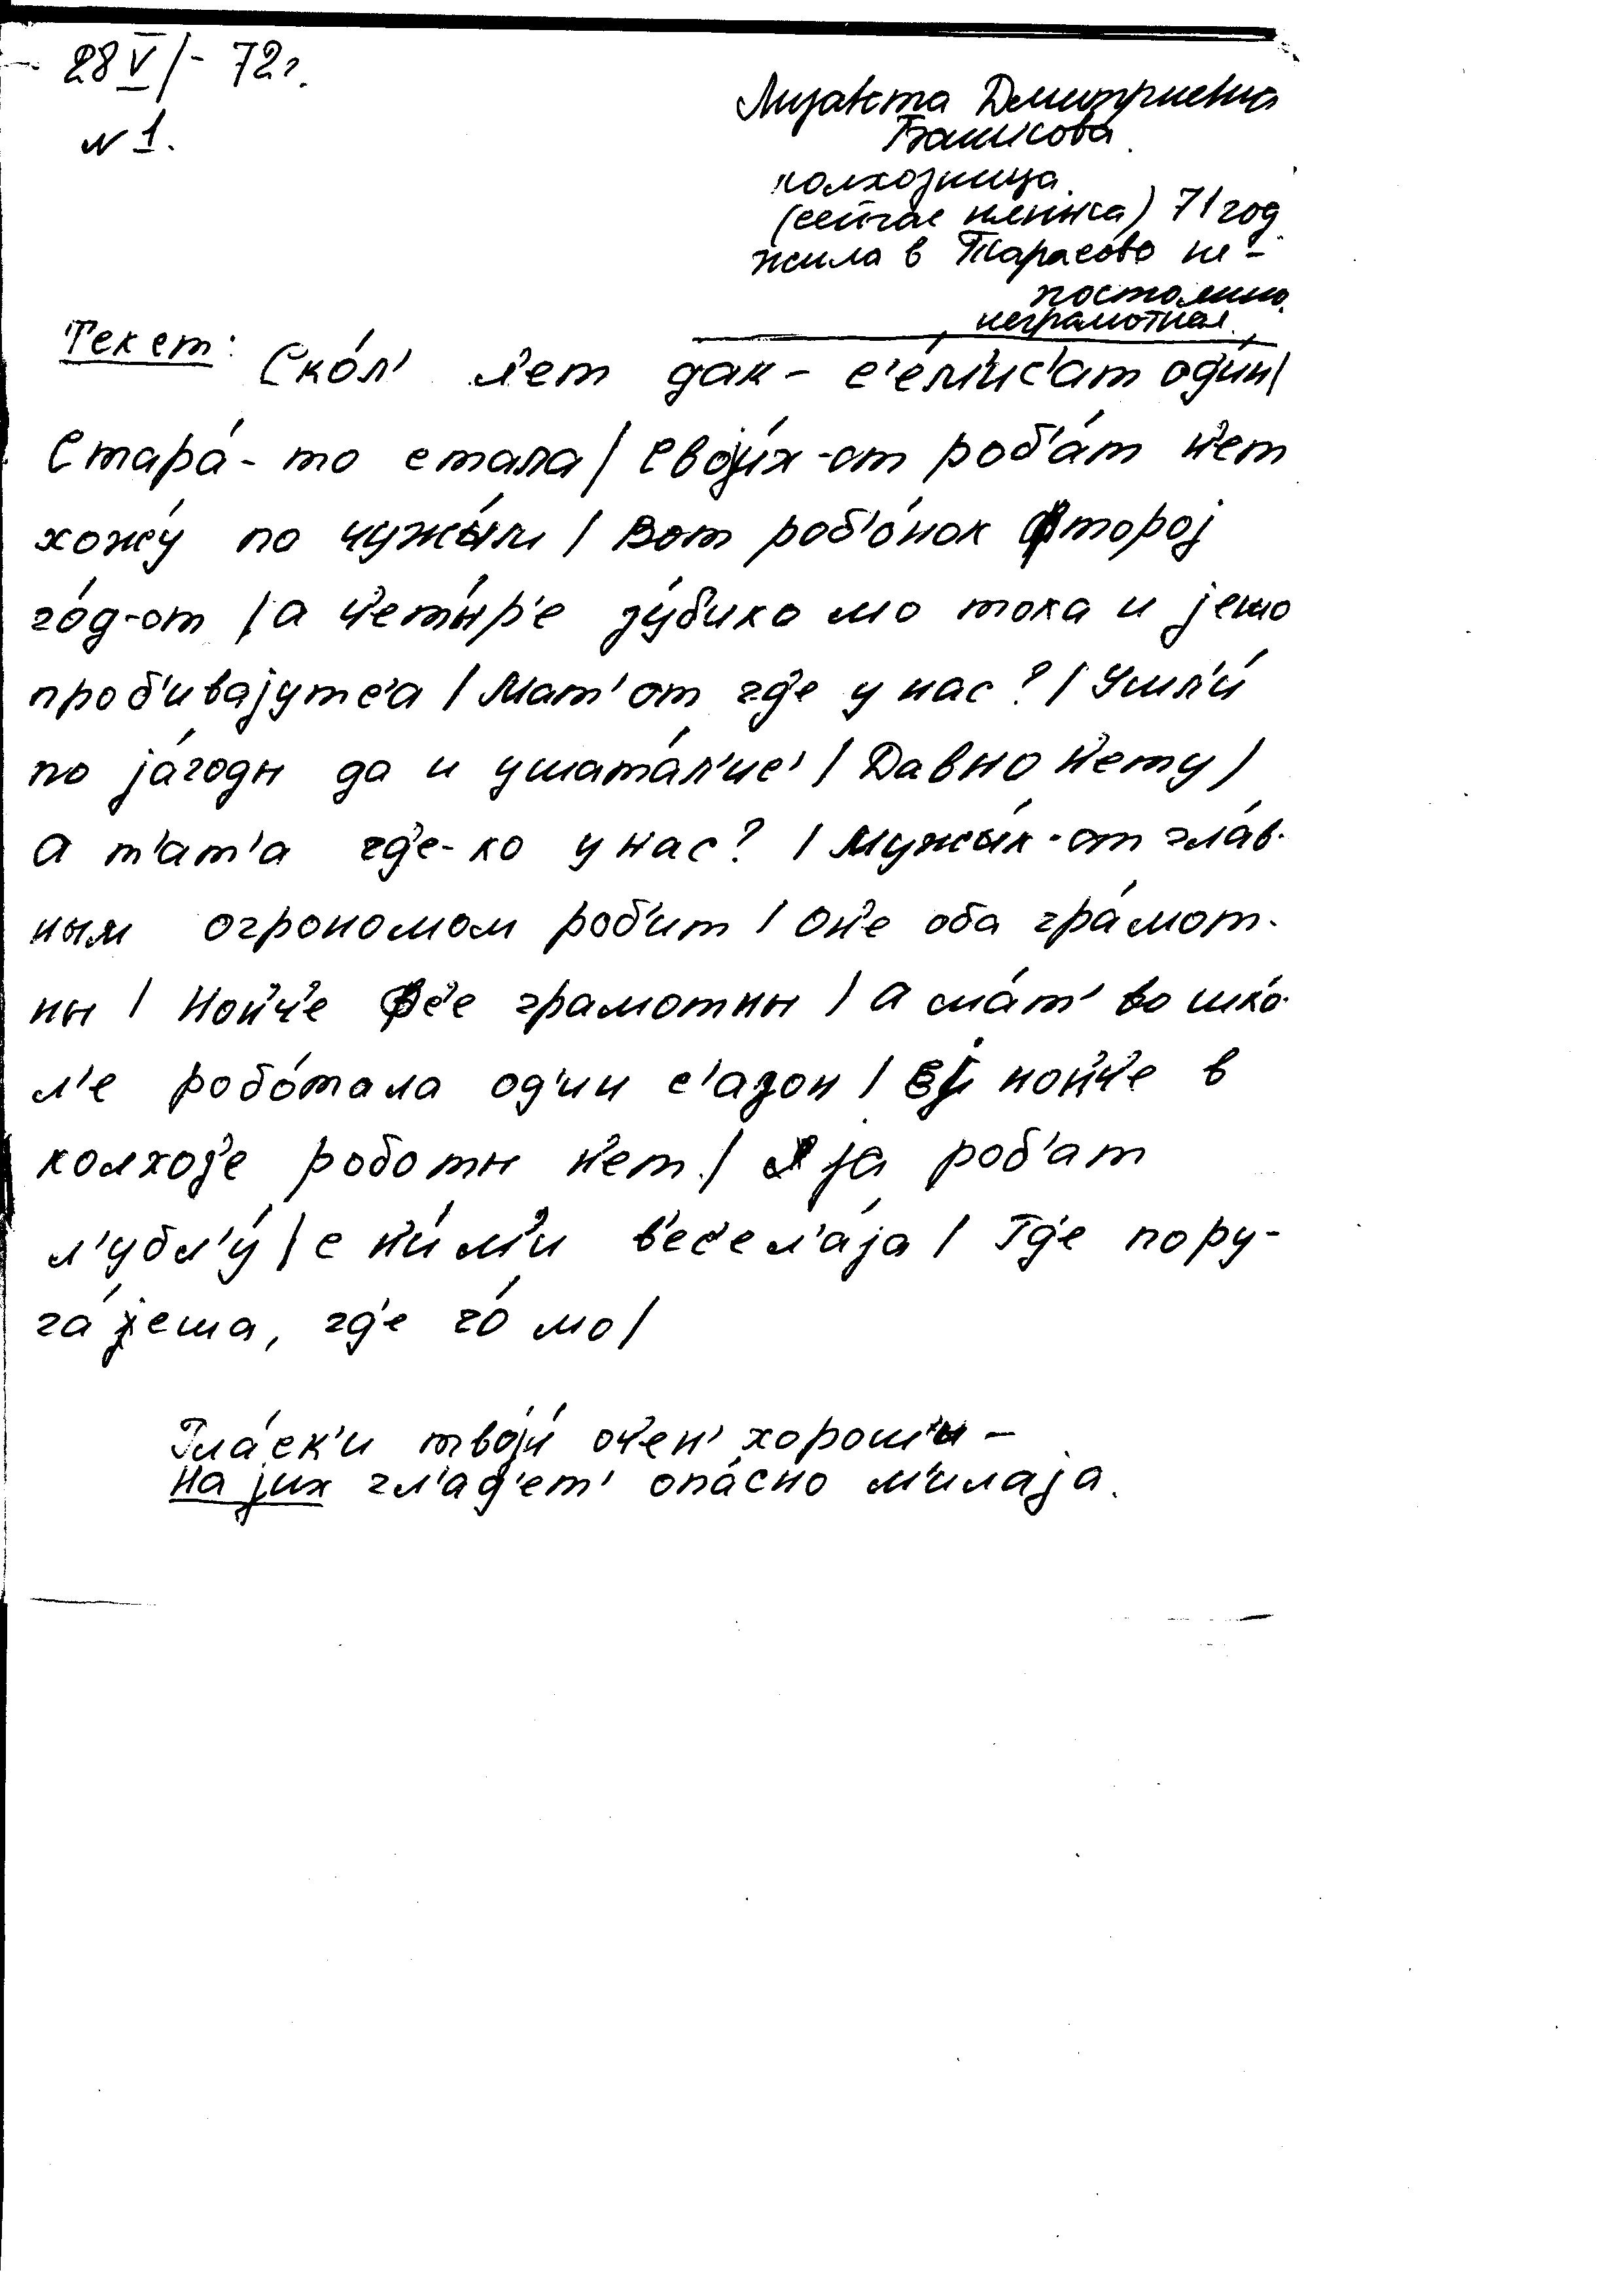 28 VI - 72 г.
N 1.
Лизавета Дмитриевна
Башкова
колхозница.
(сейчас пенька) 71 год
жила в Тарасово не-
постоянно.
неграмотная.
Текст: Ско́л' л'ет дак – с'е́м'ис'ат од'и́н/
Стара́-то стала / своjи́х-от роб'а́т н'ет
хожу́ по чужы́м / Вот роб'о́нок фторој
го́д-от / а ч'еты́р'е зу́бико мо тока и јешо
проб'иваjутс'а / Мат'от гд'е у нас? / Ушл'и́
по jа́годы да и ушата́л'ис' / Давно н'ету /
а т'ат'а гд'е-ко у нас? / Мужы́к-от гла́в-
ным огрономом роб'ит / он'е оба гра́мот-
ны / Нон'ч'е фс'е грамотны / а ма́т' во шко́-
л'е робо́тала од'ин с'азон / нон'ч'е в
колхоз'е роботы н'ет. / ја роб'ат
л'убл'у́ / с н'и́м'и в'ес'ел'а́jа / Гд'е пору-
га́jеша, гд'е чо́ мо /
Гла́ск'и твоjи́ оч'ен' хорош'и –
на jих гл'ад'ет' опа́сно м'илаjа.